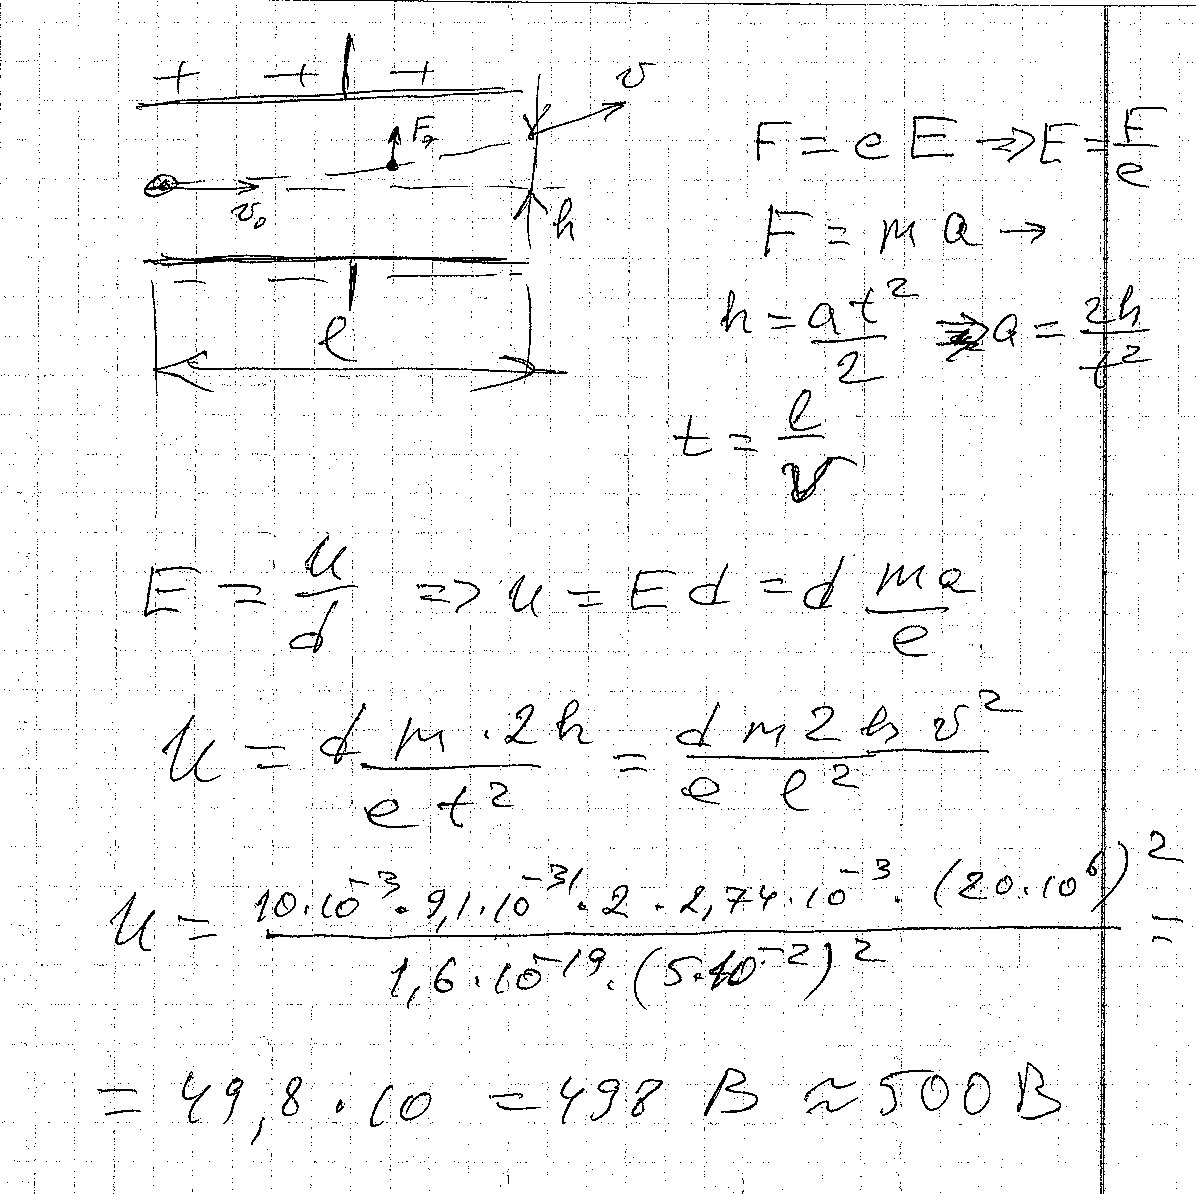 + + +
v
Fэ
v₀
h
— — —
l
F = e E → E = F/e
F = m a →
h = at²/2 ⇒ a = 2h/t²
t = l/v
E = u/d => u = E d = d ma/e
u = d m · 2h / e t² = d m 2 h v² / e l²
u = 10·10⁻³ · 9,1·10⁻³¹ · 2 · 2,74·10⁻³ · (20·10⁶)² / 1,6·10⁻¹⁹ · (5·10⁻²)² =
= 49,8 · 10 = 498 В ≈ 500 В